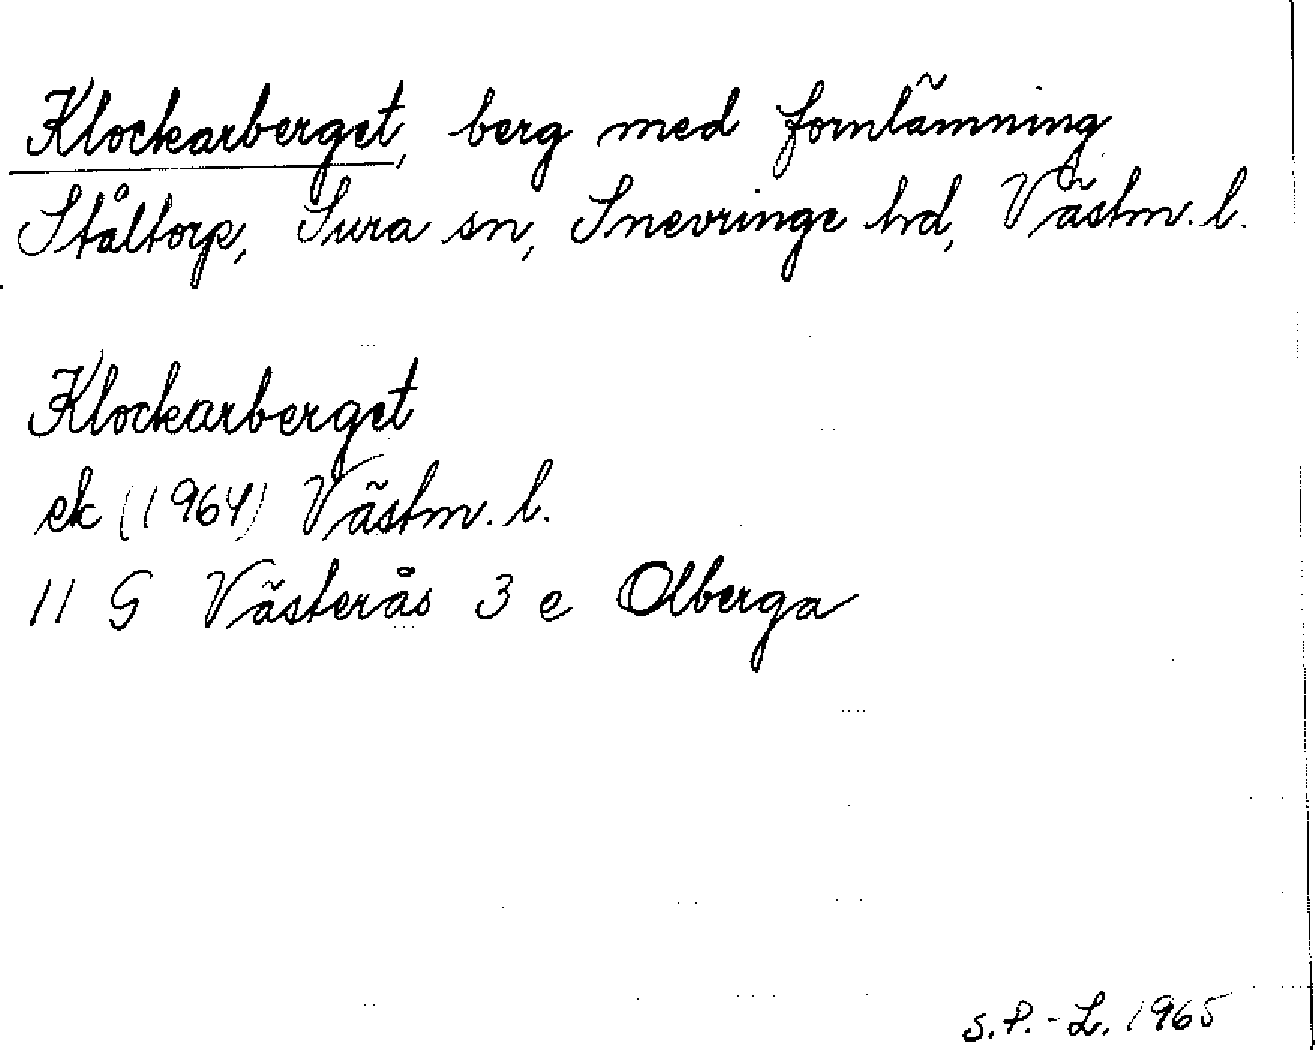 Klockarberget, berg med fornlämning
Ståltorp, Sura sn, Snevringe hd, Västm. l.
Klockarberget
ek (1964) Västm. l.
11 G Västerås 3 e Olberga
S.P.-L. 1965